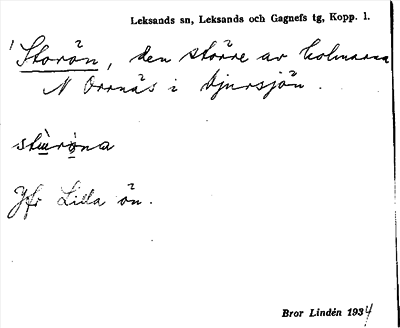 Leksands sn, Leksands och Gagnefs tg, Kopp. l.
1 Storön, den större av holmarna
N Orrnäs i Djursjön.
stùròna
Jfr Lilla ön.
Bror Lindén 1934